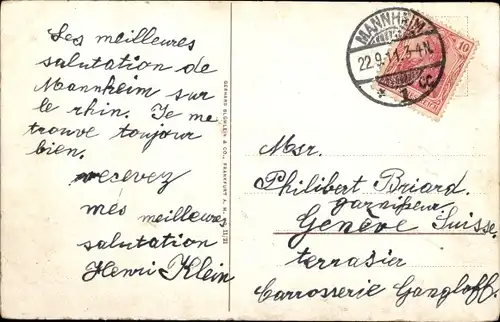 Les meilleures
salutation de
Mannheim sur
le rhin. Je me
trouve toujour
bien.
recevez
mes meilleures
salutation
Henri Klein
MANNHEIM
22.9.11.3-4N.
* 1 cc
10
Msr.
Philibert Briard.
garnisseur
Genève Suisse.
terrasier
Carrosserie Gangloff.